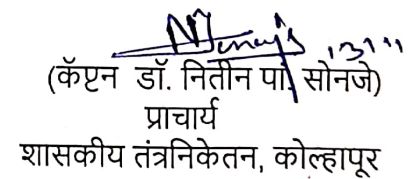 (कॅप्टन डॉ. नितीन पां. सोनजे)
प्राचार्य
शासकीय तंत्रनिकेतन, कोल्हापूर